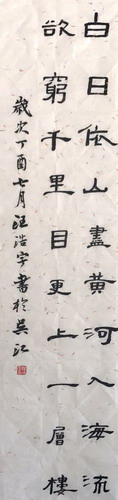 白日依山盡黃河入海流
欲窮千里目更上一層樓
歲次丁酉七月汪浩宇書於吳江